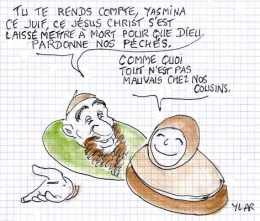 TU TE RENDS COMPTE, YASMINA
CE JUIF, CE JÉSUS CHRIST S'EST
LAISSÉ METTRE À MORT POUR QUE DIEU
PARDONNE NOS PÉCHÉS.
COMME QUOI
TOUT N'EST PAS
MAUVAIS CHEZ NOS
COUSINS.
YLAR